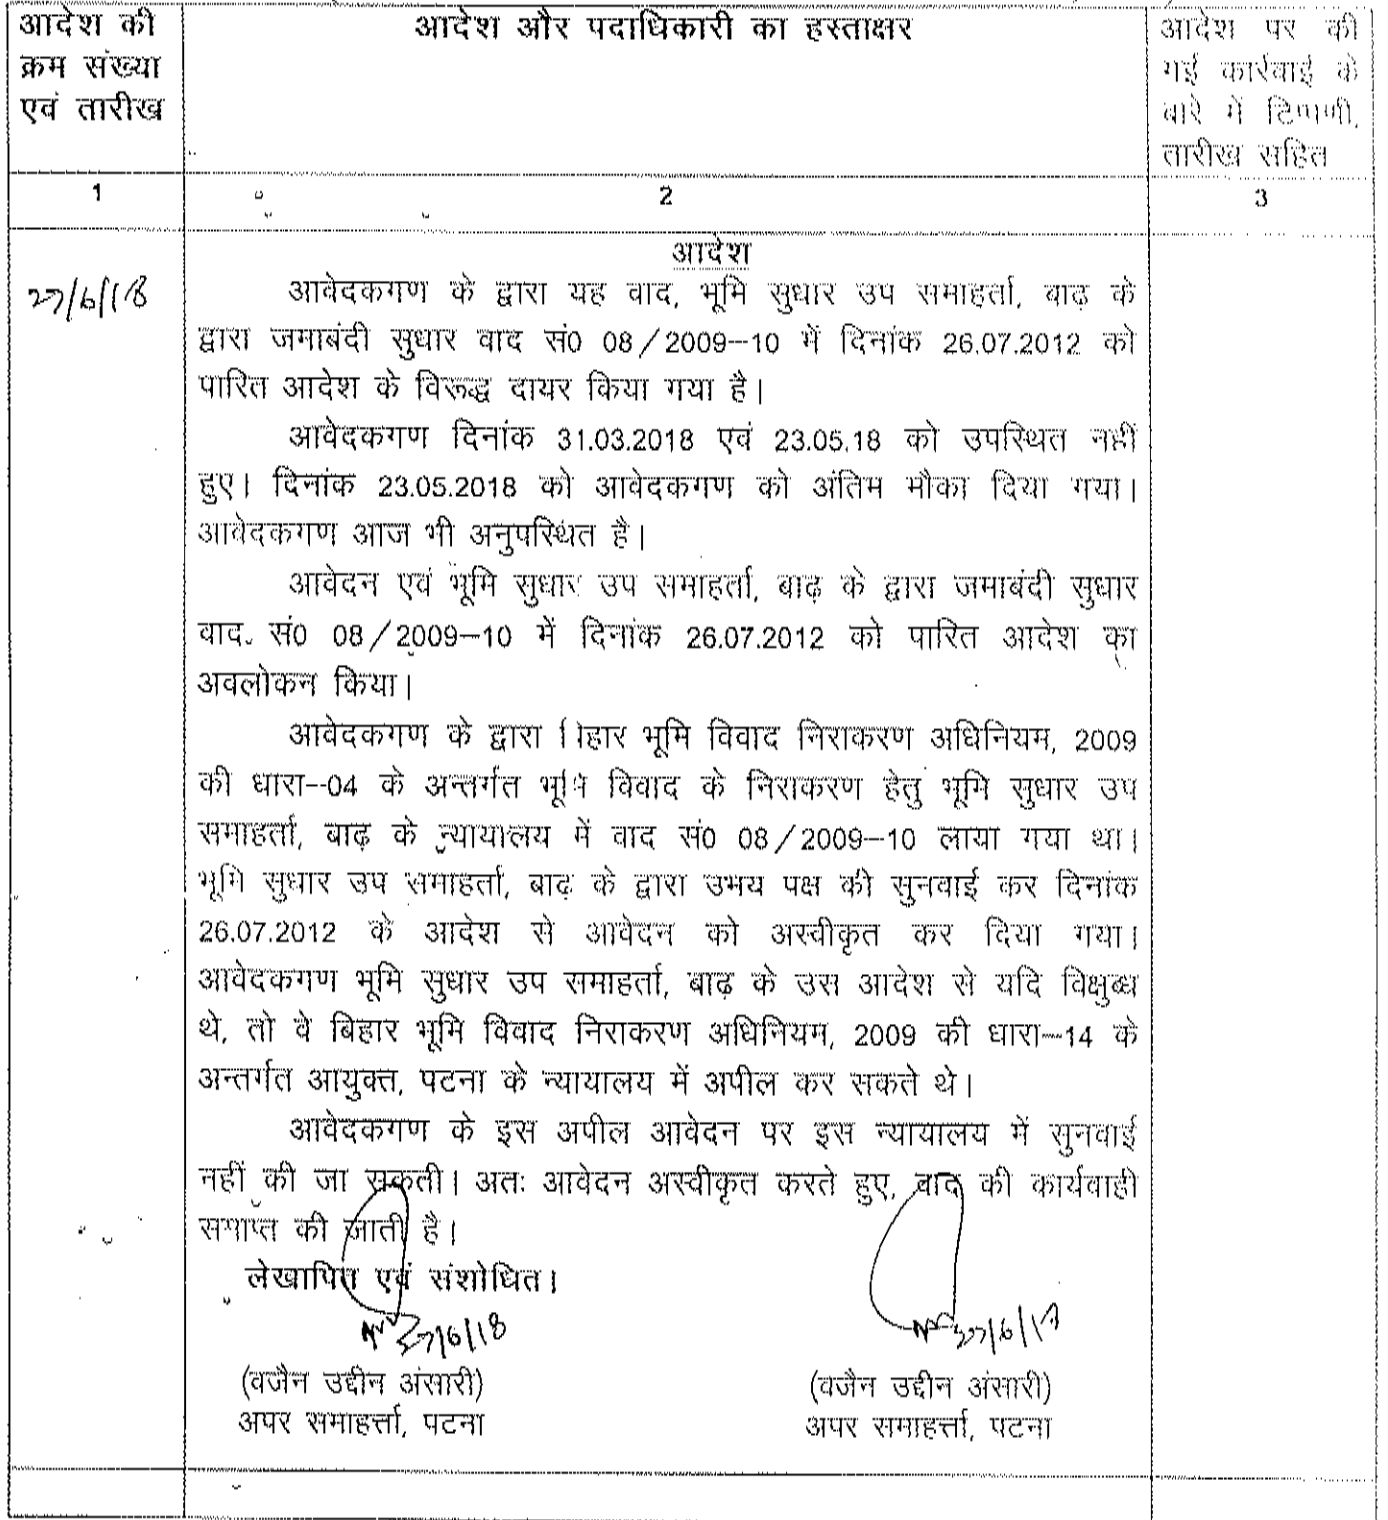 आदेश की
क्रम संख्या
एवं तारीख
आदेश और पदाधिकारी का हस्ताक्षर
आदेश पर की
गई कार्रवाई के
बारे में टिप्पणी,
तारीख सहित
1
2
3
27/6/18
आदेश
आवेदकगण के द्वारा यह वाद, भूमि सुधार उप समाहर्ता, बाढ़ के
द्वारा जमाबंदी सुधार वाद सं0 08/2009-10 में दिनांक 26.07.2012 को
पारित आदेश के विरूद्ध दायर किया गया है।
आवेदकगण दिनांक 31.03.2018 एवं 23.05.18 को उपस्थित नहीं
हुए। दिनांक 23.05.2018 को आवेदकगण को अंतिम मौका दिया गया।
आवेदकगण आज भी अनुपस्थित है।
आवेदन एवं भूमि सुधार उप समाहर्ता, बाढ़ के द्वारा जमाबंदी सुधार
वाद सं0 08/2009-10 में दिनांक 26.07.2012 को पारित आदेश का
अवलोकन किया।
आवेदकगण के द्वारा बिहार भूमि विवाद निराकरण अधिनियम, 2009
की धारा-04 के अन्तर्गत भूमि विवाद के निराकरण हेतु भूमि सुधार उप
समाहर्ता, बाढ़ के न्यायालय में वाद सं0 08/2009-10 लाया गया था।
भूमि सुधार उप समाहर्ता, बाढ़ के द्वारा उभय पक्ष की सुनवाई कर दिनांक
26.07.2012 के आदेश से आवेदन को अस्वीकृत कर दिया गया।
आवेदकगण भूमि सुधार उप समाहर्ता, बाढ़ के उस आदेश से यदि विक्षुब्ध
थे, तो वे बिहार भूमि विवाद निराकरण अधिनियम, 2009 की धारा-14 के
अन्तर्गत आयुक्त, पटना के न्यायालय में अपील कर सकते थे।
आवेदकगण के इस अपील आवेदन पर इस न्यायालय में सुनवाई
नहीं की जा सकती। अतः आवेदन अस्वीकृत करते हुए, वाद की कार्यवाही
समाप्त की जाती है।
लेखापित एवं संशोधित।
27/6/18
27/6/18
(वजैन उद्दीन अंसारी)
अपर समाहर्त्ता, पटना
(वजैन उद्दीन अंसारी)
अपर समाहर्त्ता, पटना